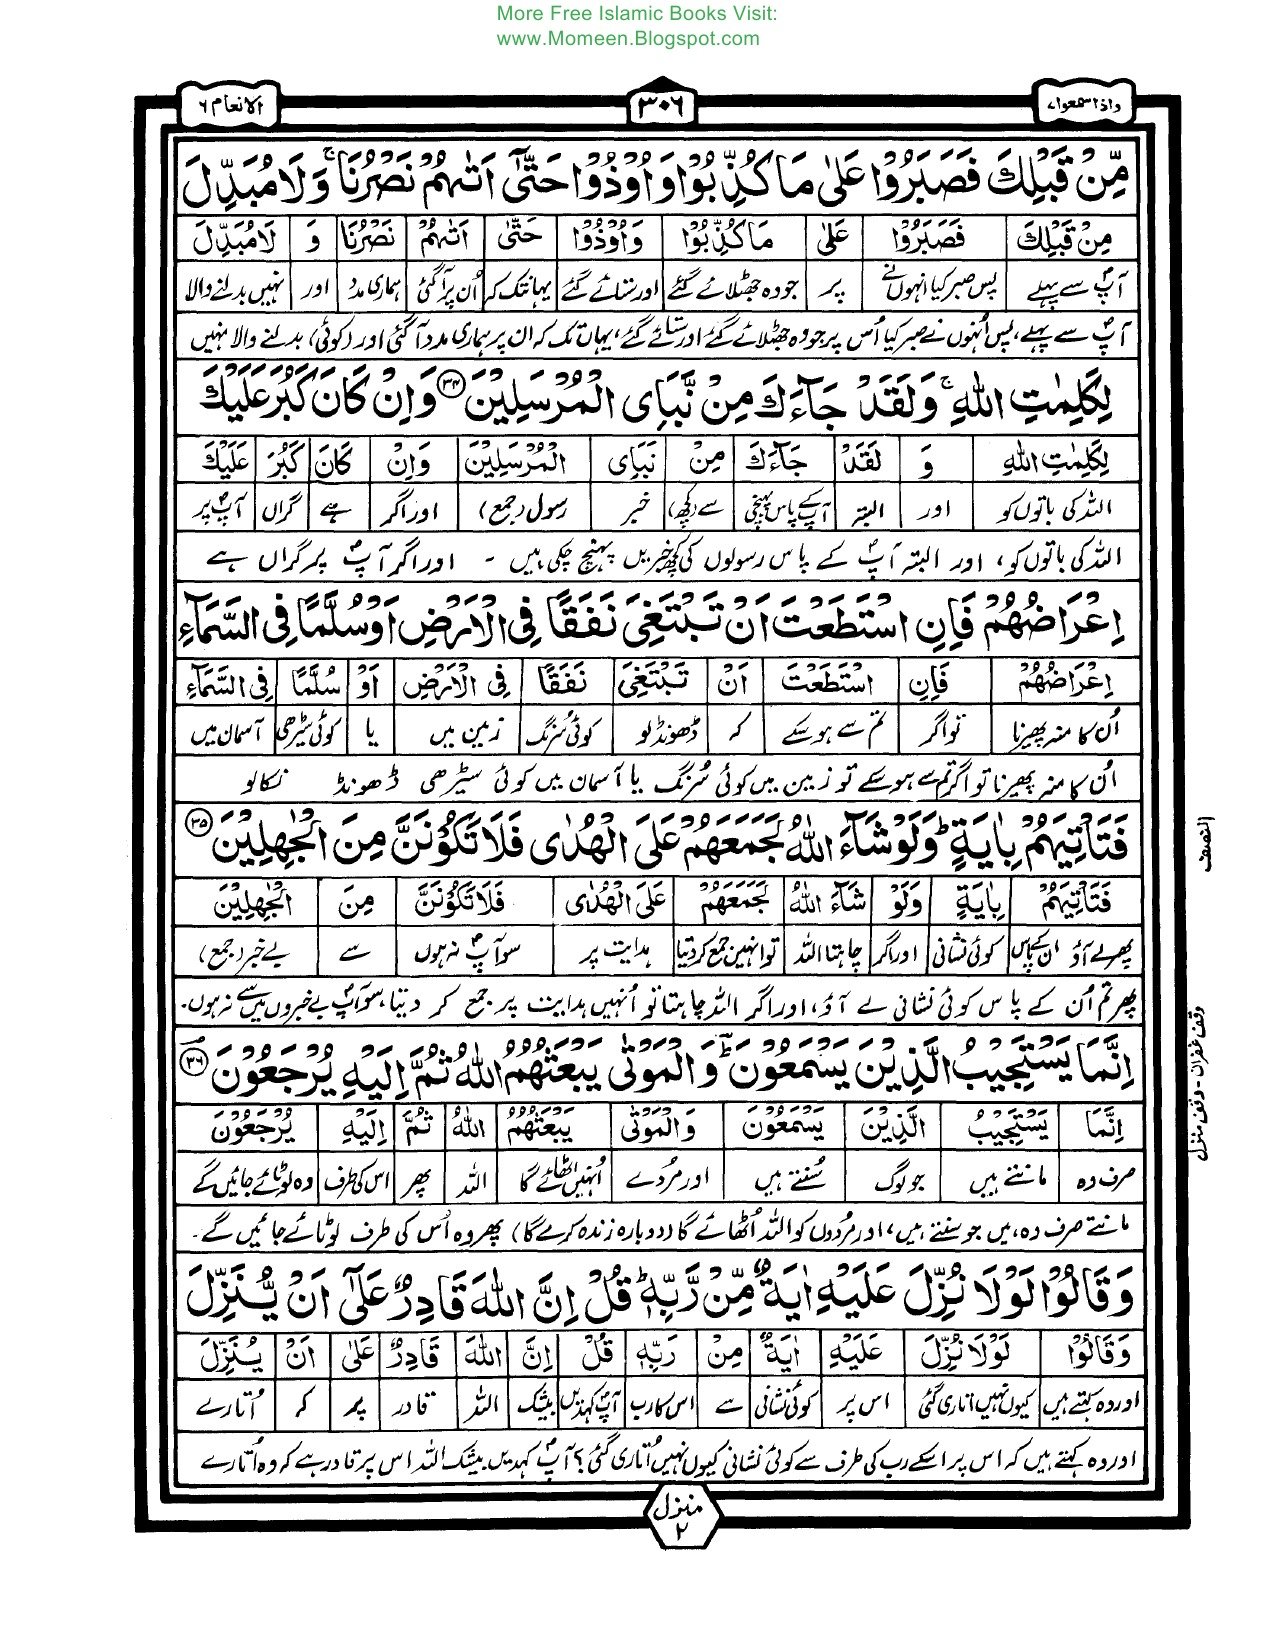 More Free Islamic Books Visit:
www.Momeen.Blogspot.com
واذاسمعوا۷ ۳۰۶ الانعام ۶
مِّنْ قَبْلِكَ فَصَبَرُوْا عَلٰى مَا كُذِّبُوْا وَاُوْذُوْا حَتّٰٓى اَتٰىهُمْ نَصْرُنَا ۚ وَلَا مُبَدِّلَ
مِنْ قَبْلِكَ فَصَبَرُوْا عَلٰى مَا كُذِّبُوْا وَاُوْذُوْا حَتّٰى اَتٰىهُمْ نَصْرُنَا وَ لَا مُبَدِّلَ
آپؐ سے پہلے پس صبر کیا انہوں نے پر جو وہ جھٹلائے گئے اور ستائے گئے یہانتک کہ اُن پر آگئی ہماری مدد اور نہیں بدلنے والا
آپؐ سے پہلے، پس اُنہوں نے صبر کیا اُس پر جو وہ جھٹلائے گئے اور ستائے گئے، یہاں تک کہ ان پر ہماری مدد آ گئی اور (کوئی) بدلنے والا نہیں
لِكَلِمٰتِ اللّٰهِ ۚ وَلَقَدْ جَآءَكَ مِنْ نَّبَاِى الْمُرْسَلِيْنَ ۳۴ وَاِنْ كَانَ كَبُرَ عَلَيْكَ
لِكَلِمٰتِ اللّٰهِ وَ لَقَدْ جَآءَكَ مِنْ نَبَاِى الْمُرْسَلِيْنَ وَاِنْ كَانَ كَبُرَ عَلَيْكَ
اللہ کی باتوں کو اور البتہ آپؐ کے پاس پہنچی سے (کچھ) خبر رسول (جمع) اور اگر ہے گراں آپؐ پر
اللہ کی باتوں کو، اور البتہ آپؐ کے پاس رسولوں کی کچھ خبریں پہنچ چکی ہیں - اور اگر آپؐ پر گراں ہے
اِعْرَاضُهُمْ فَاِنِ اسْتَطَعْتَ اَنْ تَبْتَغِىَ نَفَقًا فِى الْاَرْضِ اَوْ سُلَّمًا فِى السَّمَآءِ
اِعْرَاضُهُمْ فَاِنِ اسْتَطَعْتَ اَنْ تَبْتَغِىَ نَفَقًا فِى الْاَرْضِ اَوْ سُلَّمًا فِى السَّمَآءِ
اُن کا منہ پھیرنا تو اگر تم سے ہو سکے کہ ڈھونڈ لو کوئی سُرنگ زمین میں یا کوئی سیڑھی آسمان میں
اُن کا منہ پھیرنا تو اگر تم سے ہو سکے تو زمین میں کوئی سُرنگ یا آسمان میں کوئی سیڑھی ڈھونڈ نکالو
فَتَاْتِيَهُمْ بِاٰيَةٍ ؕ وَلَوْ شَآءَ اللّٰهُ لَجَمَعَهُمْ عَلَى الْهُدٰى فَلَا تَكُوْنَنَّ مِنَ الْجٰهِلِيْنَ ۳۵
النصف
فَتَاْتِيَهُمْ بِاٰيَةٍ وَلَوْ شَآءَ اللّٰهُ لَجَمَعَهُمْ عَلَى الْهُدٰى فَلَا تَكُوْنَنَّ مِنَ الْجٰهِلِيْنَ
پھر لے آؤ ان کے پاس کوئی نشانی اور اگر چاہتا اللہ تو انہیں جمع کر دیتا ہدایت پر سو آپؐ نہ ہوں سے بے خبر (جمع)
پھر تم اُن کے پاس کوئی نشانی لے آؤ، اور اگر اللہ چاہتا تو اُنہیں ہدایت پر جمع کر دیتا، سو آپؐ بے خبروں میں سے نہ ہوں۔
اِنَّمَا يَسْتَجِيْبُ الَّذِيْنَ يَسْمَعُوْنَ ؕ وَالْمَوْتٰى يَبْعَثُهُمُ اللّٰهُ ثُمَّ اِلَيْهِ يُرْجَعُوْنَ ۳۶
وقف غفران - وقف منزل
اِنَّمَا يَسْتَجِيْبُ الَّذِيْنَ يَسْمَعُوْنَ وَالْمَوْتٰى يَبْعَثُهُمُ اللّٰهُ ثُمَّ اِلَيْهِ يُرْجَعُوْنَ
صرف وہ مانتے ہیں جو لوگ سُنتے ہیں اور مُردے اُنہیں اٹھائے گا اللہ پھر اس کی طرف وہ لوٹائے جائیں گے
مانتے صرف وہ ہیں جو سنتے ہیں، اور مُردوں کو اللہ اُٹھائے گا (دوبارہ زندہ کرے گا) پھر وہ اُس کی طرف لوٹائے جائیں گے۔
وَقَالُوْا لَوْلَا نُزِّلَ عَلَيْهِ اٰيَةٌ مِّنْ رَّبِّهٖ ؕ قُلْ اِنَّ اللّٰهَ قَادِرٌ عَلٰٓى اَنْ يُّنَزِّلَ
وَقَالُوْا لَوْلَا نُزِّلَ عَلَيْهِ اٰيَةٌ مِنْ رَبِّهٖ قُلْ اِنَّ اللّٰهَ قَادِرٌ عَلٰى اَنْ يُنَزِّلَ
اور وہ کہتے ہیں کیوں نہیں اتاری گئی اس پر کوئی نشانی سے اس کا رب آپؐ کہدیں بیشک اللہ قادر پر کہ اُتارے
اور وہ کہتے ہیں کہ اس پر اسکے رب کی طرف سے کوئی نشانی کیوں نہیں اُتاری گئی؟ آپؐ کہدیں بیشک اللہ اس پر قادر ہے کہ وہ اُتارے
منزل ۲